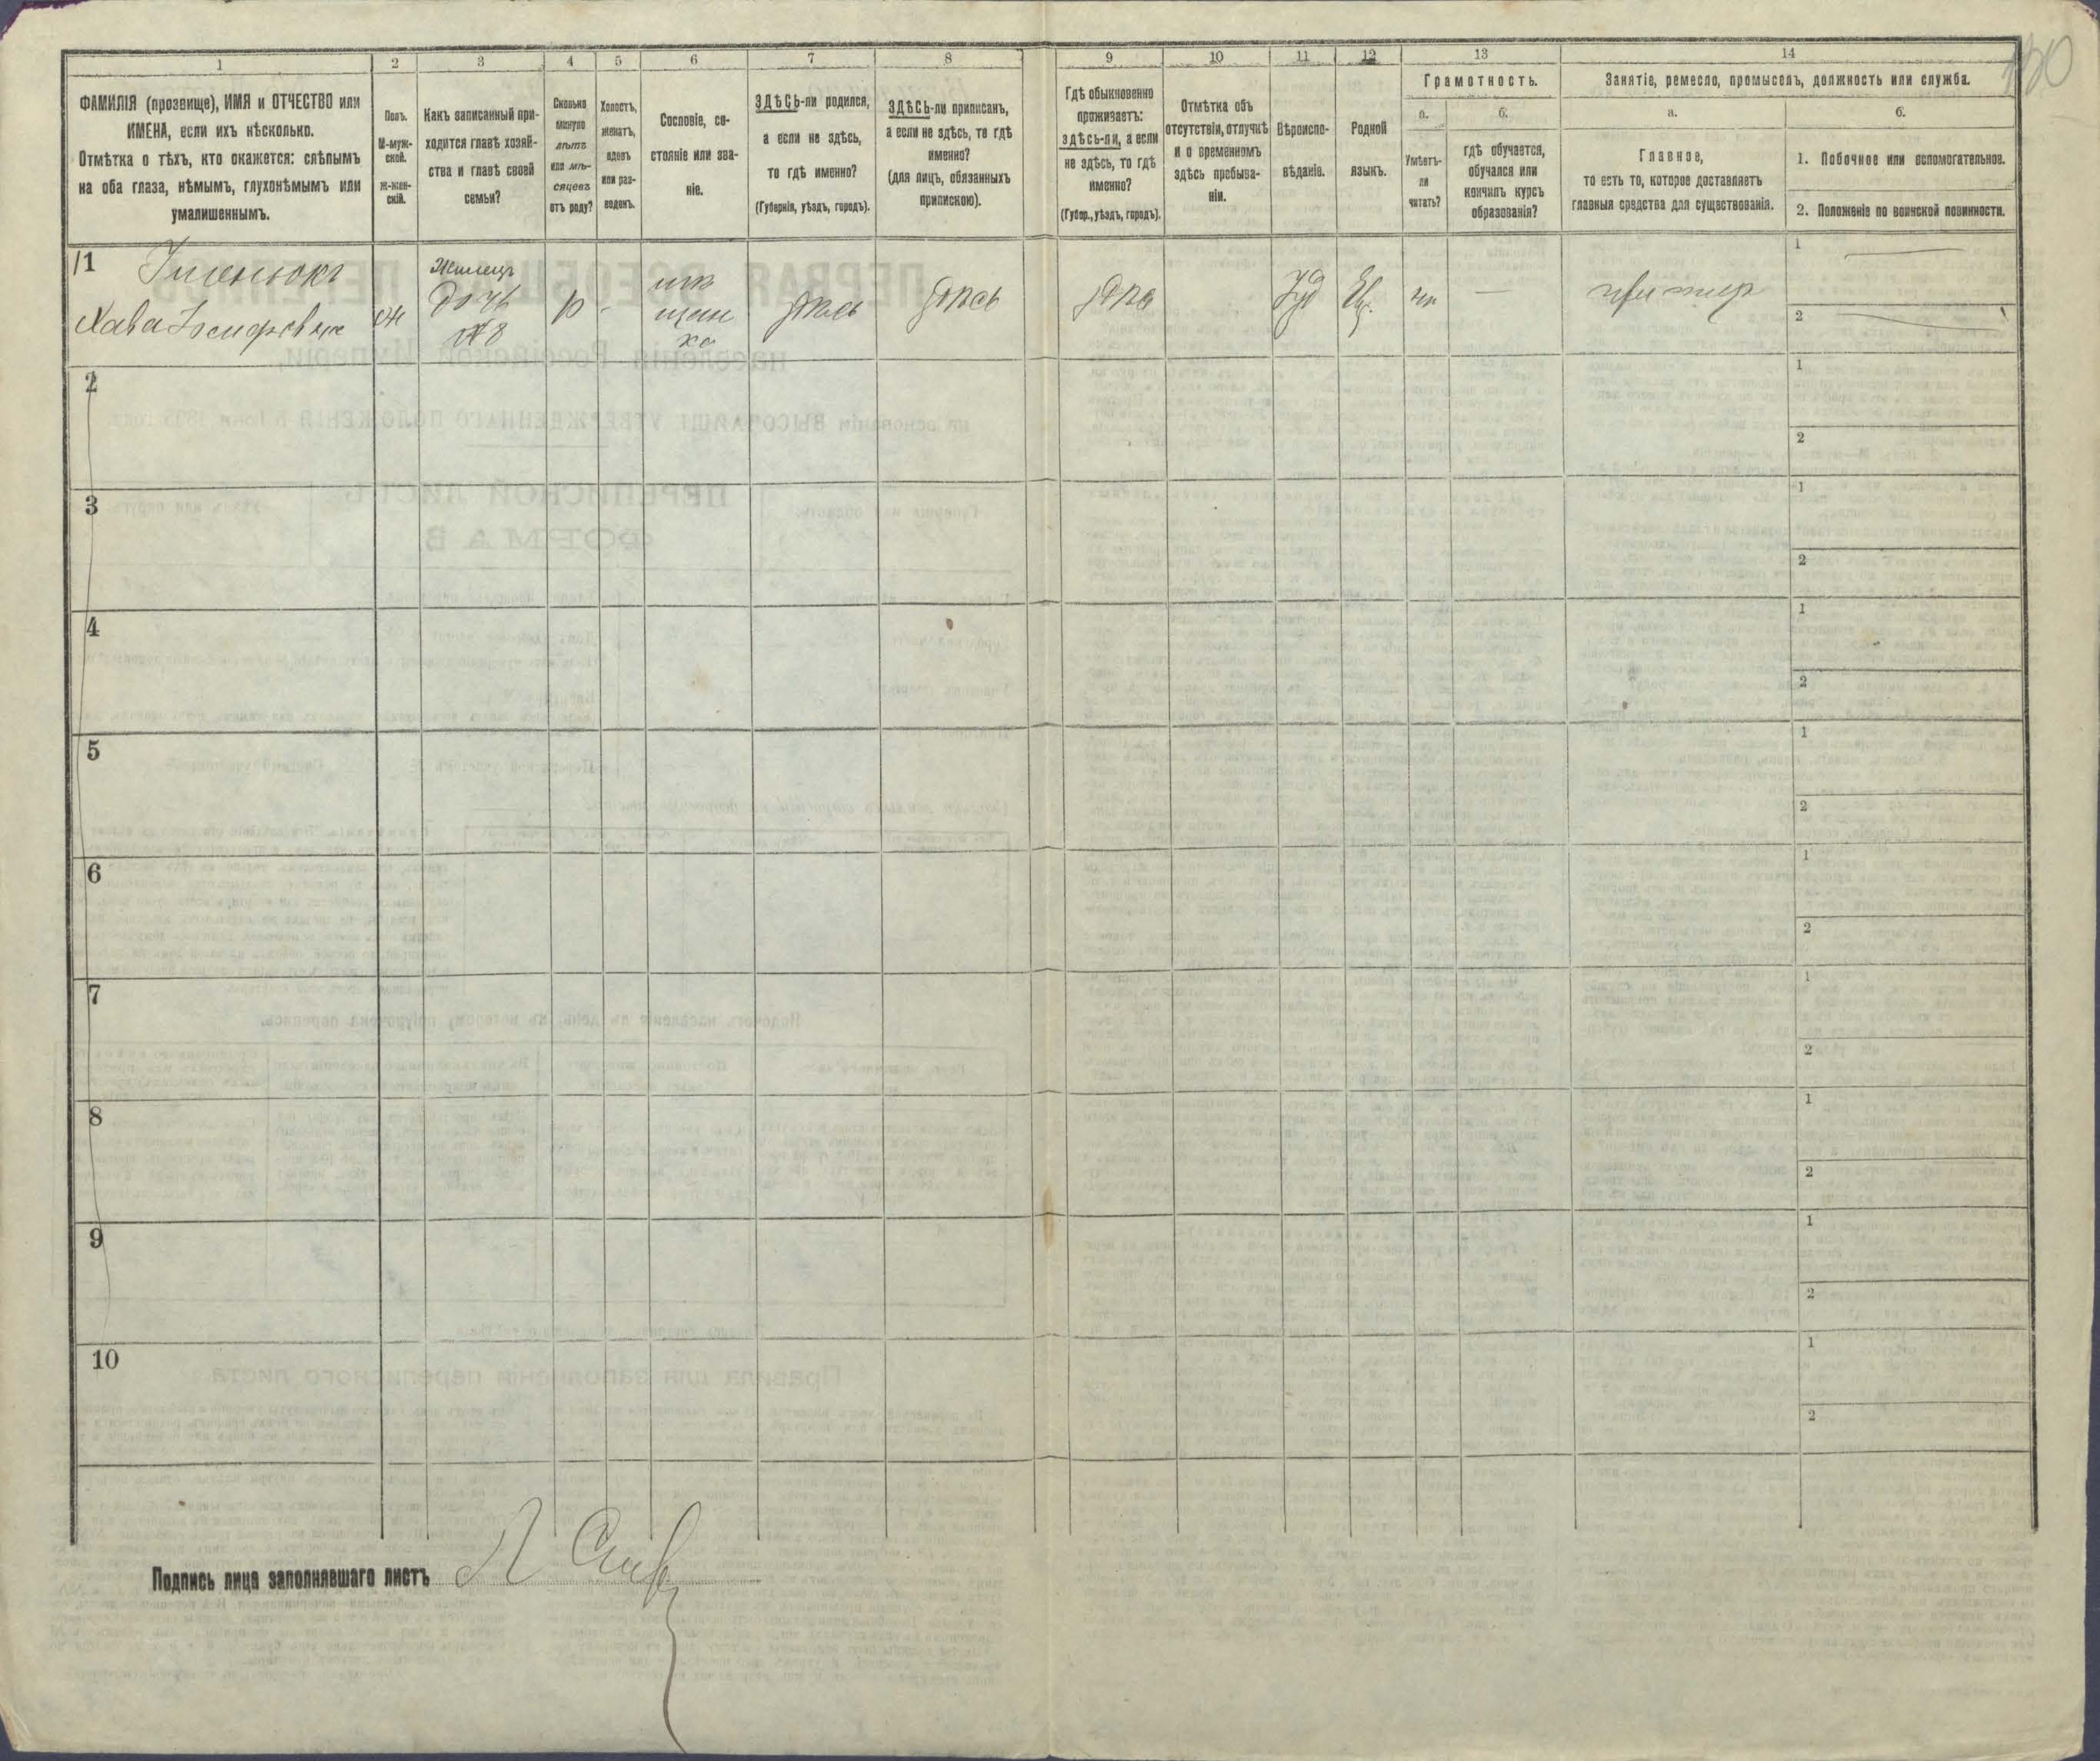 130
1
2
3
4
5
6
7
8
9
10
11
12
13
14
ФАМИЛІЯ (прозвище), ИМЯ и ОТЧЕСТВО или
ИМЕНА, если ихъ нѣсколько.
Отмѣтка о тѣхъ, кто окажется: слѣпымъ
на оба глаза, нѣмымъ, глухонѣмымъ или
умалишеннымъ.
Полъ.
М-муж-
ской.
ж-жен-
скій.
Какъ записанный при-
ходится главѣ хозяй-
ства и главѣ своей
семьи?
Сколько
минуло
лѣтъ
или мѣ-
сяцевъ
отъ роду?
Холостъ,
женатъ,
вдовъ
или раз-
веденъ.
Сословіе, со-
стояніе или зва-
ніе.
ЗДѢСЬ-ли родился,
а если не здѣсь,
то гдѣ именно?
(Губернія, уѣздъ, городъ).
ЗДѢСЬ-ли приписанъ,
а если не здѣсь, то гдѣ
именно?
(для лицъ, обязанныхъ
припискою).
Гдѣ обыкновенно
проживаетъ:
здѣсь-ли, а если
не здѣсь, то гдѣ
именно?
(Губер., уѣздъ, городъ).
Отмѣтка объ
отсутствіи, отлучкѣ
и о временномъ
здѣсь пребыва-
ніи.
Вѣроиспо-
вѣданіе.
Родной
языкъ.
Грамотность.
а.
Умѣетъ-
ли
читать?
б.
гдѣ обучается,
обучался или
кончилъ курсъ
образованія?
Занятіе, ремесло, промыселъ, должность или служба.
а.
Главное,
то есть то, которое доставляетъ
главныя средства для существованія.
б.
1. Побочное или вспомогательное.
2. Положеніе по воинской повинности.
1
Хава
ж
Жилецъ
дочь
№8
-
мѣ
щан
ка
здѣсь
здѣсь
здѣсь
Іуд
Евр.
—
1
2
2
1
2
3
1
2
4
1
2
5
1
2
6
1
2
7
1
2
8
1
2
9
1
2
10
1
2
Подпись лица заполнявшаго листъ